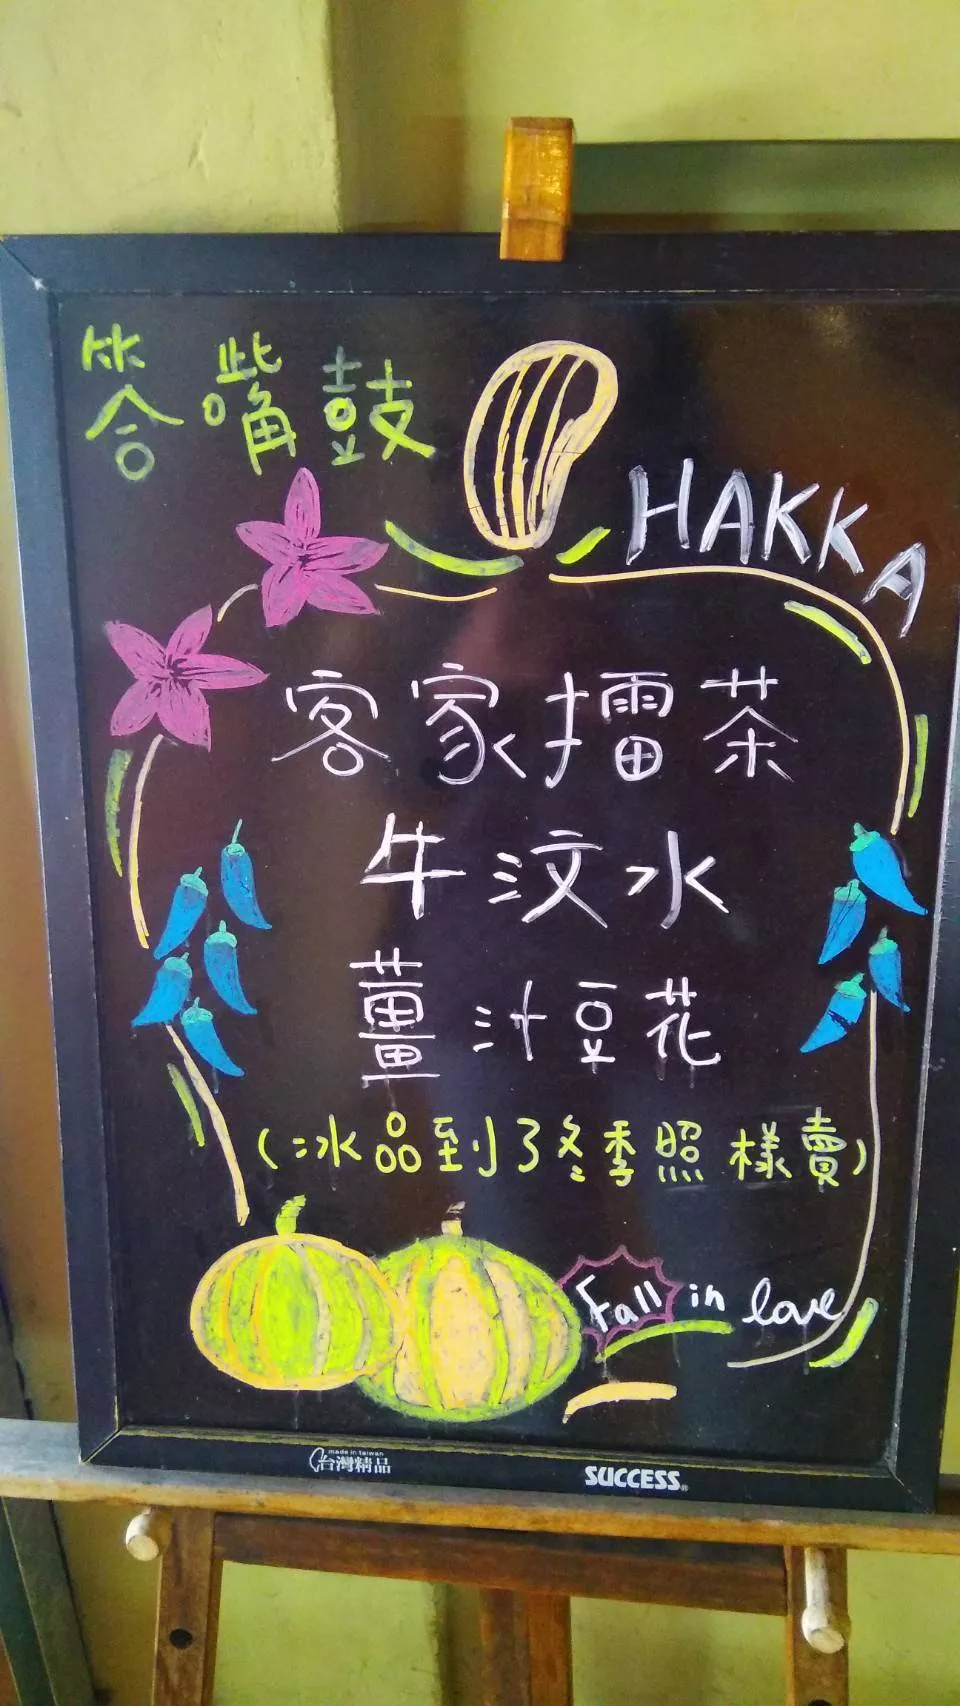 答嘴鼓
HAKKA
客家擂茶
牛汶水
薑汁豆花
(冰品到了冬季照樣賣)
Fall in love
made in taiwan
台灣精品
SUCCESS®